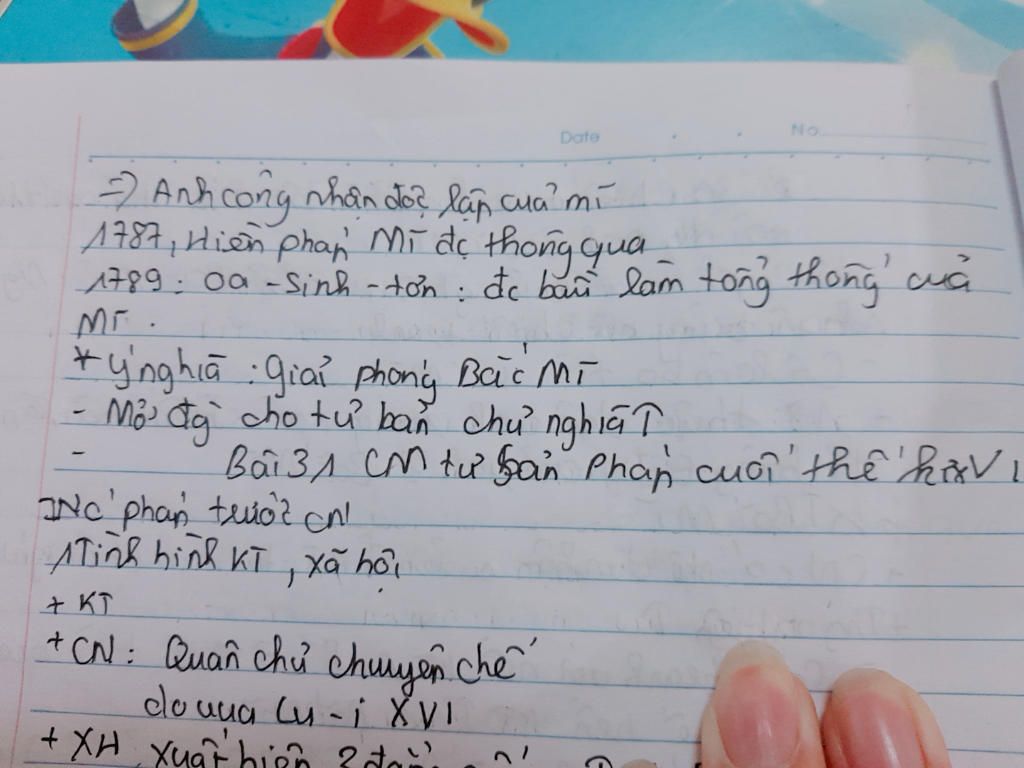 Date No
=> Anh công nhận độc lập của mĩ
1787, Hiến pháp Mĩ đc thông qua
1789: Oa-sinh-tơn: đc bầu làm tổng thống của
Mĩ.
* Ý nghĩa: giải phóng Bắc Mĩ
- Mở đg cho tư bản chủ nghĩa ↑
- Bài 31 CM tư sản Pháp cuối thế kỉ XVI
I Nc Pháp trước CM
1 Tình hình KT, xã hội
+ KT
+ CN: Quân chủ chuyên chế
do vua Lu-i XVI
+ XH xuất hiện 3 đẳng